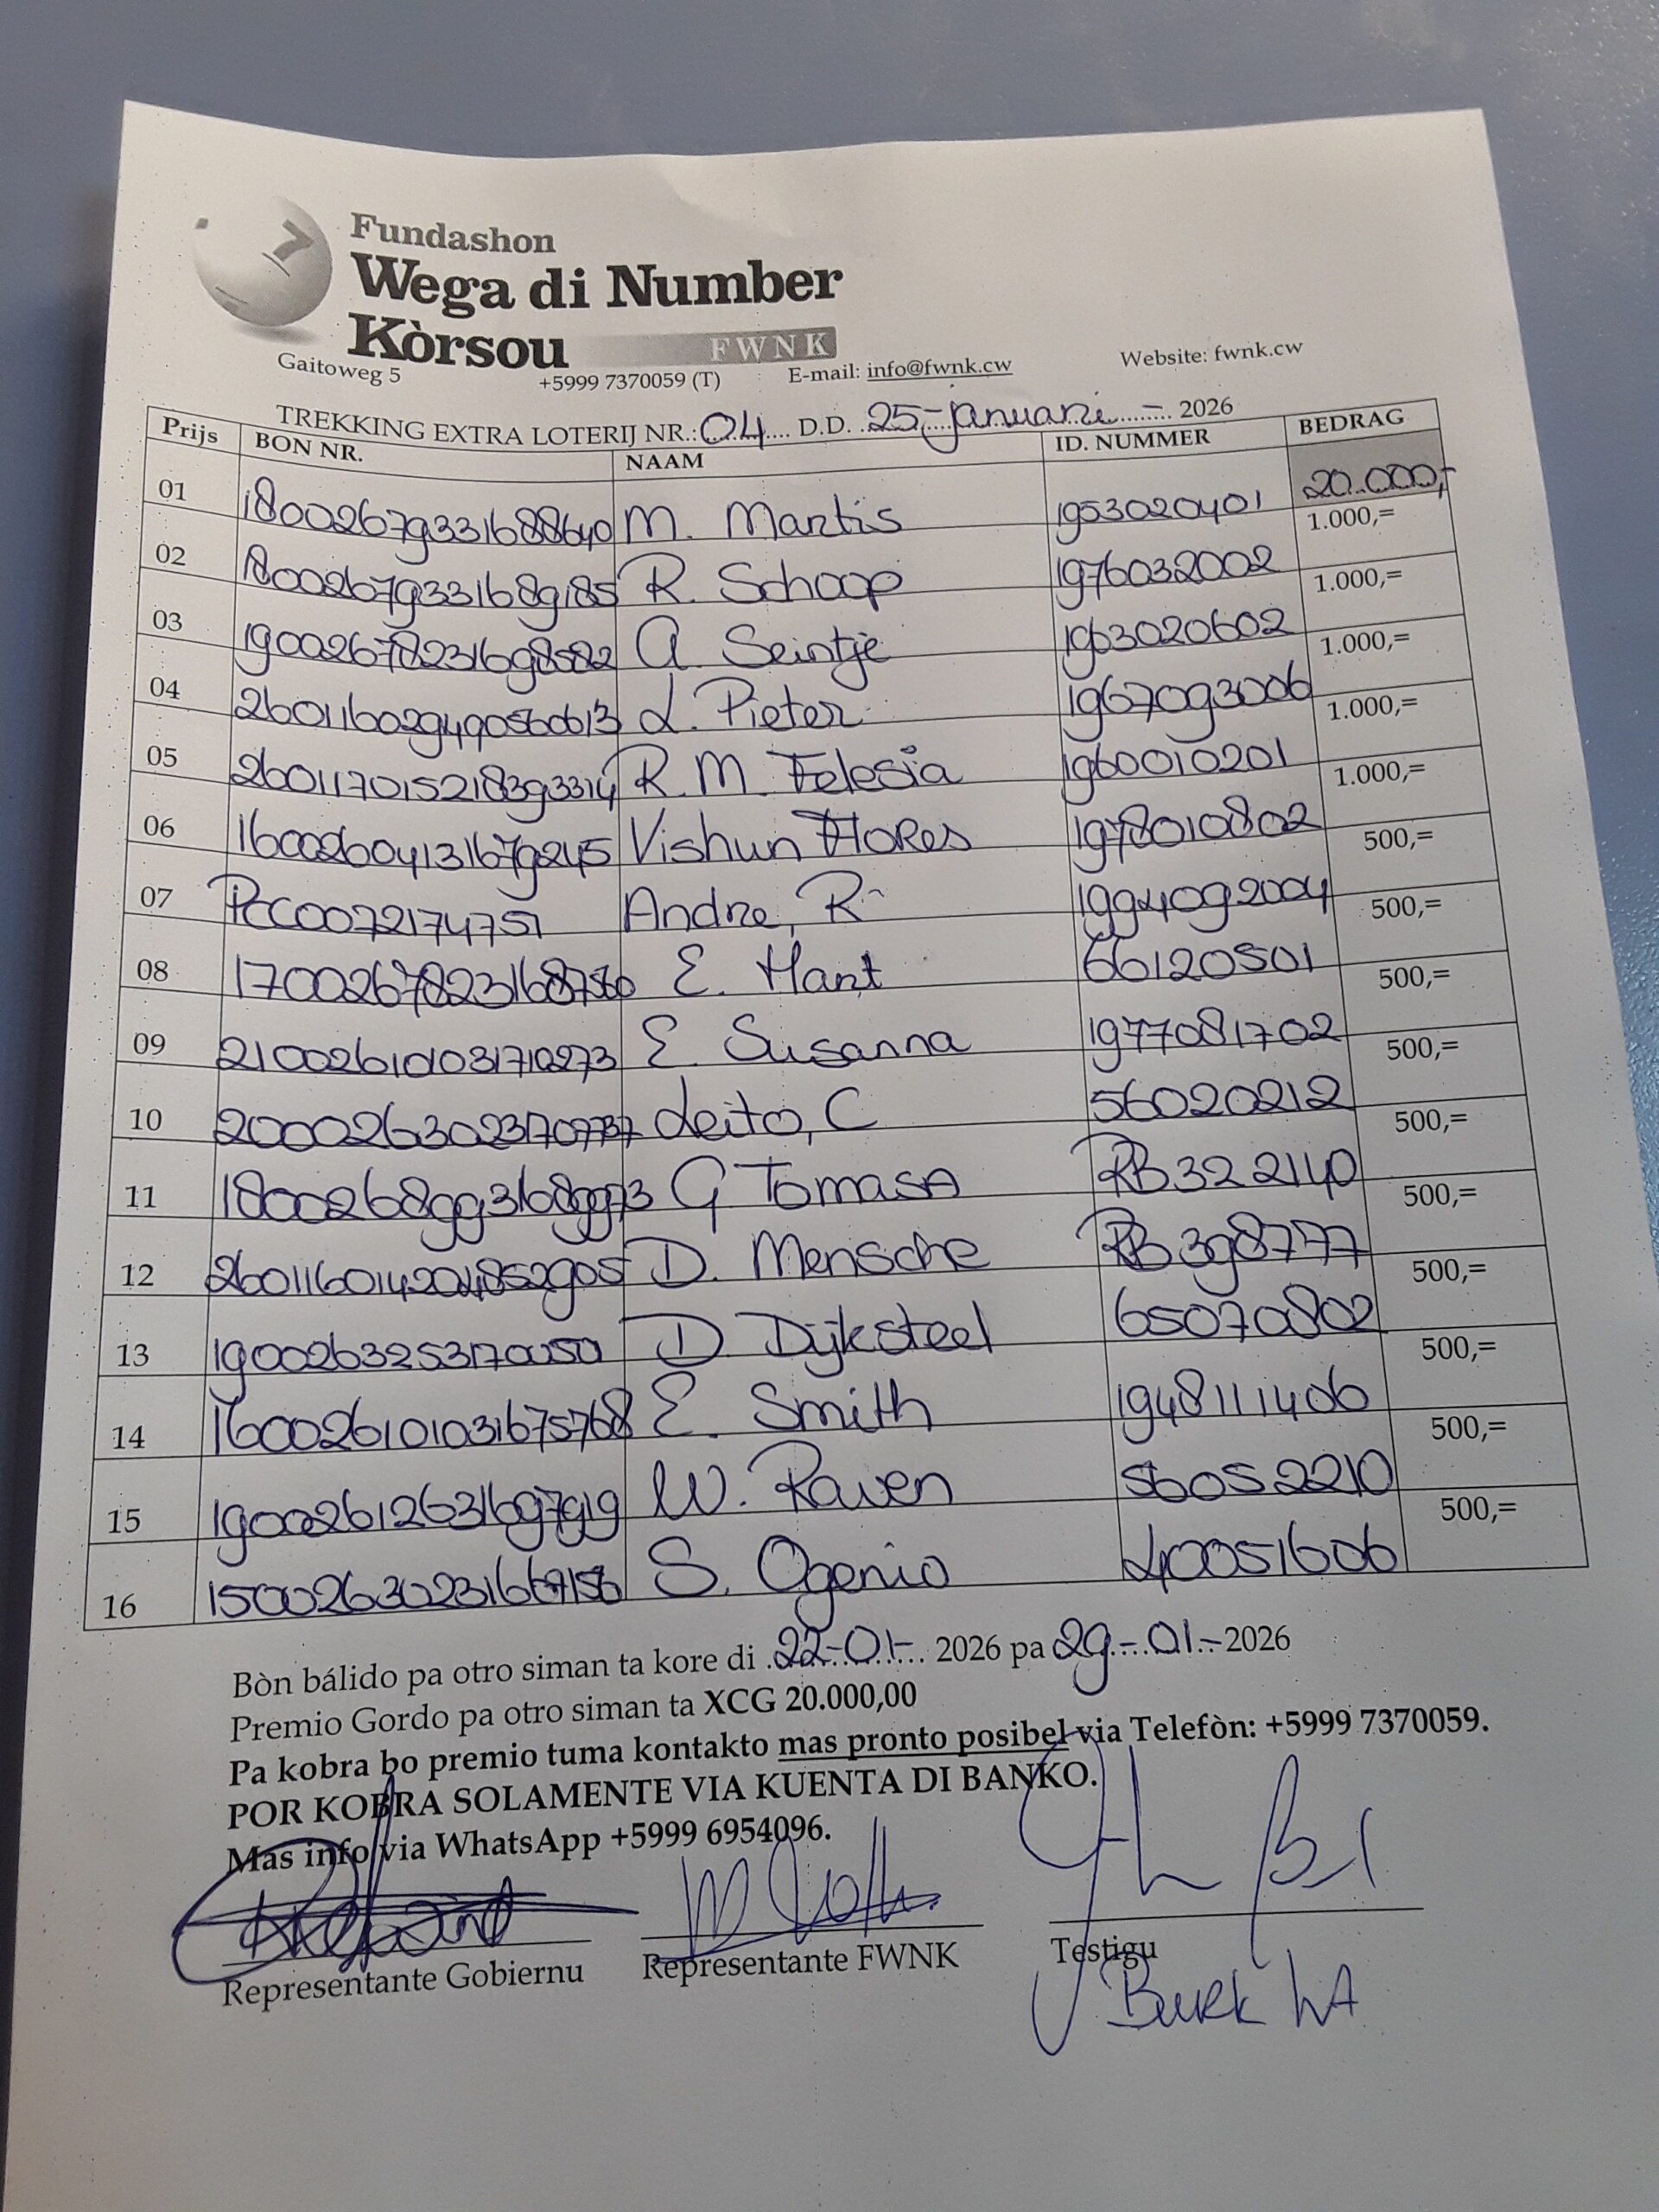 Fundashon
Wega di Number
Kòrsou FWNK
Gaitoweg 5 +5999 7370059 (T) E-mail: info@fwnk.cw Website: fwnk.cw
TREKKING EXTRA LOTERIJ NR.: 04 D.D. 25-januari- 2026
Prijs BON NR. NAAM ID. NUMMER BEDRAG
01 18002679331688640 M. Martis 1953020401 20.000,-
02 18002679331689185 R. Schoop 1976032002 1.000,=
03 19002678231698582 A. Seintje 1963020602 1.000,=
04 L. Pieter 1967093006 1.000,=
05 260117015218393314 R.M. Felesia 1960010201 1.000,=
06 16002604131679245 Vishun Flores 1978010802 1.000,=
07 PCC0072174751 Andre, R 1994092004 500,=
08 E. Hart 66120501 500,=
09 210026101031710273 E. Susanna 1977081702 500,=
10 Leito, C 56020212 500,=
11 G Tomasa RB322140 500,=
12 260116014204852905 D. Mensche RB398777 500,=
13 D. Dijksteel 65070802 500,=
14 160026101031675768 E. Smith 1948111406 500,=
15 19002612631697919 W. Raven 56052210 500,=
16 S. Ogenio 40051606 500,=
Bòn bálido pa otro siman ta kore di 22-01- 2026 pa 29-01-2026
Premio Gordo pa otro siman ta XCG 20.000,00
Pa kobra bo premio tuma kontakto mas pronto posibel via Telefòn: +5999 7370059.
POR KOBRA SOLAMENTE VIA KUENTA DI BANKO.
Mas info via WhatsApp +5999 6954096.
Representante Gobiernu Representante FWNK Testigu